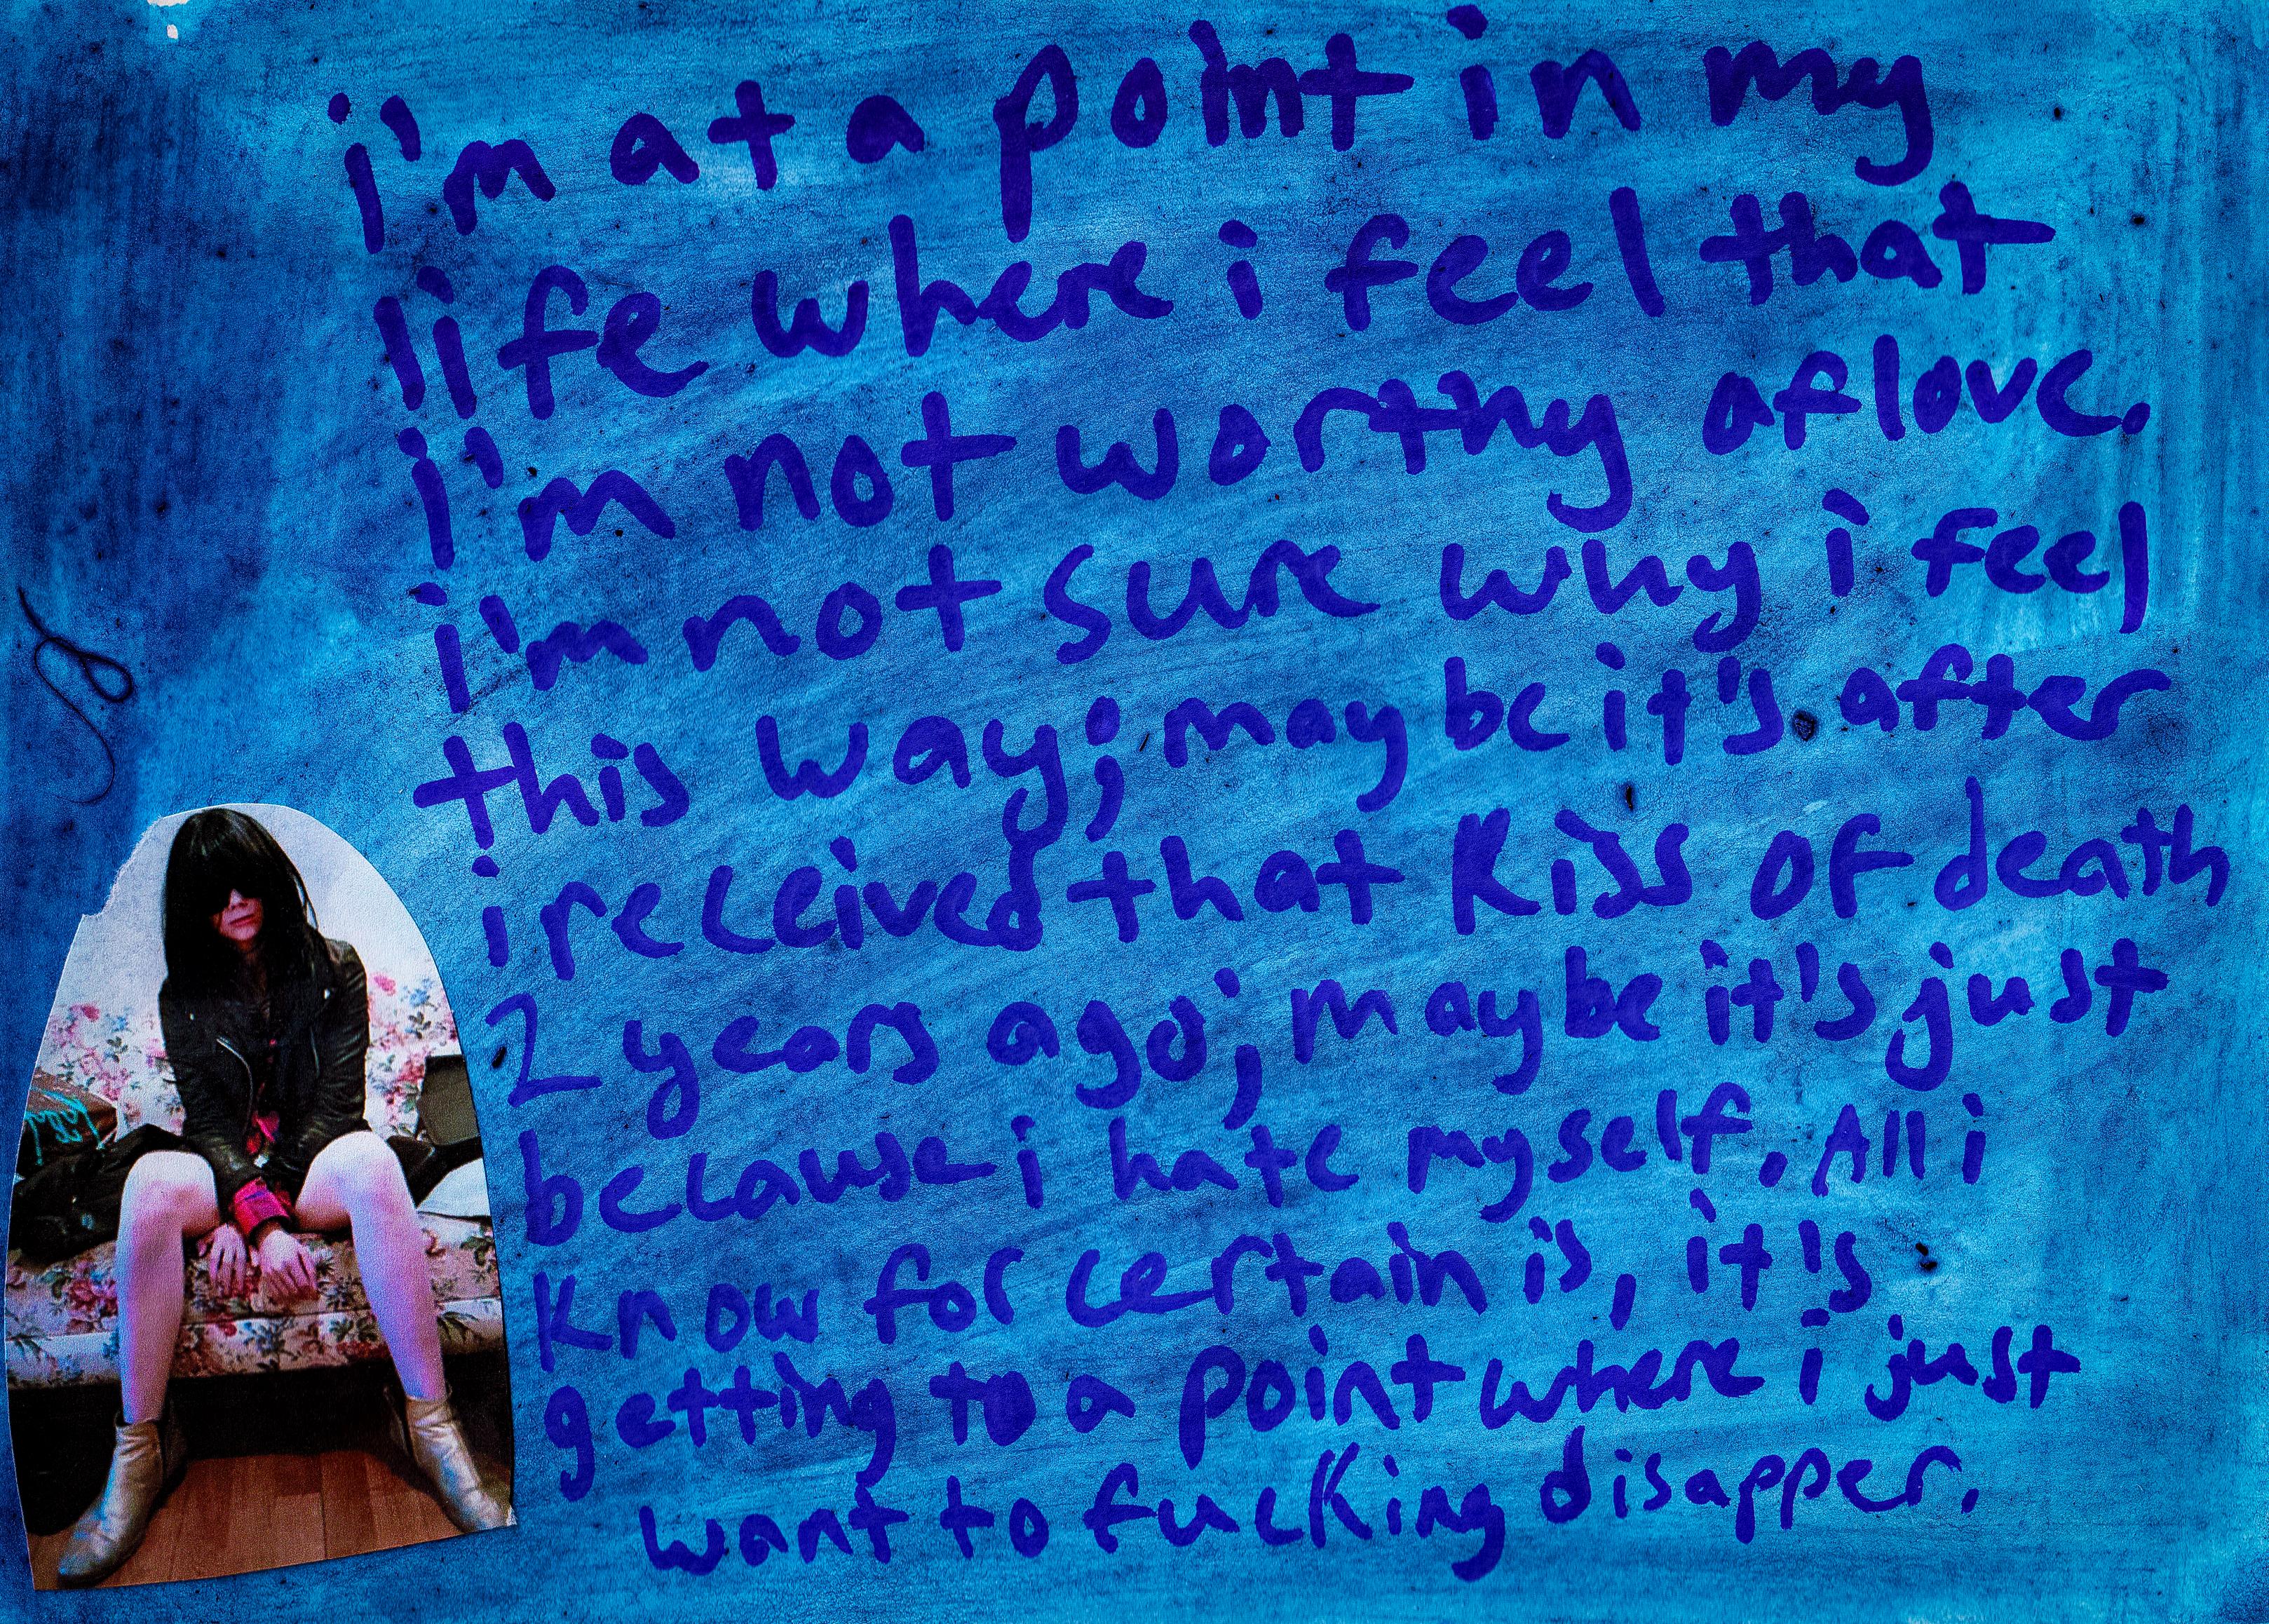 i'm at a point in my
life where i feel that
i'm not worthy of love.
i'm not sure why i feel
this way; maybe it's after
i received that kiss of death
2 years ago; maybe it's just
because i hate myself. All i
know for certain is, it's
getting to a point where i just
want to fucking disapper.